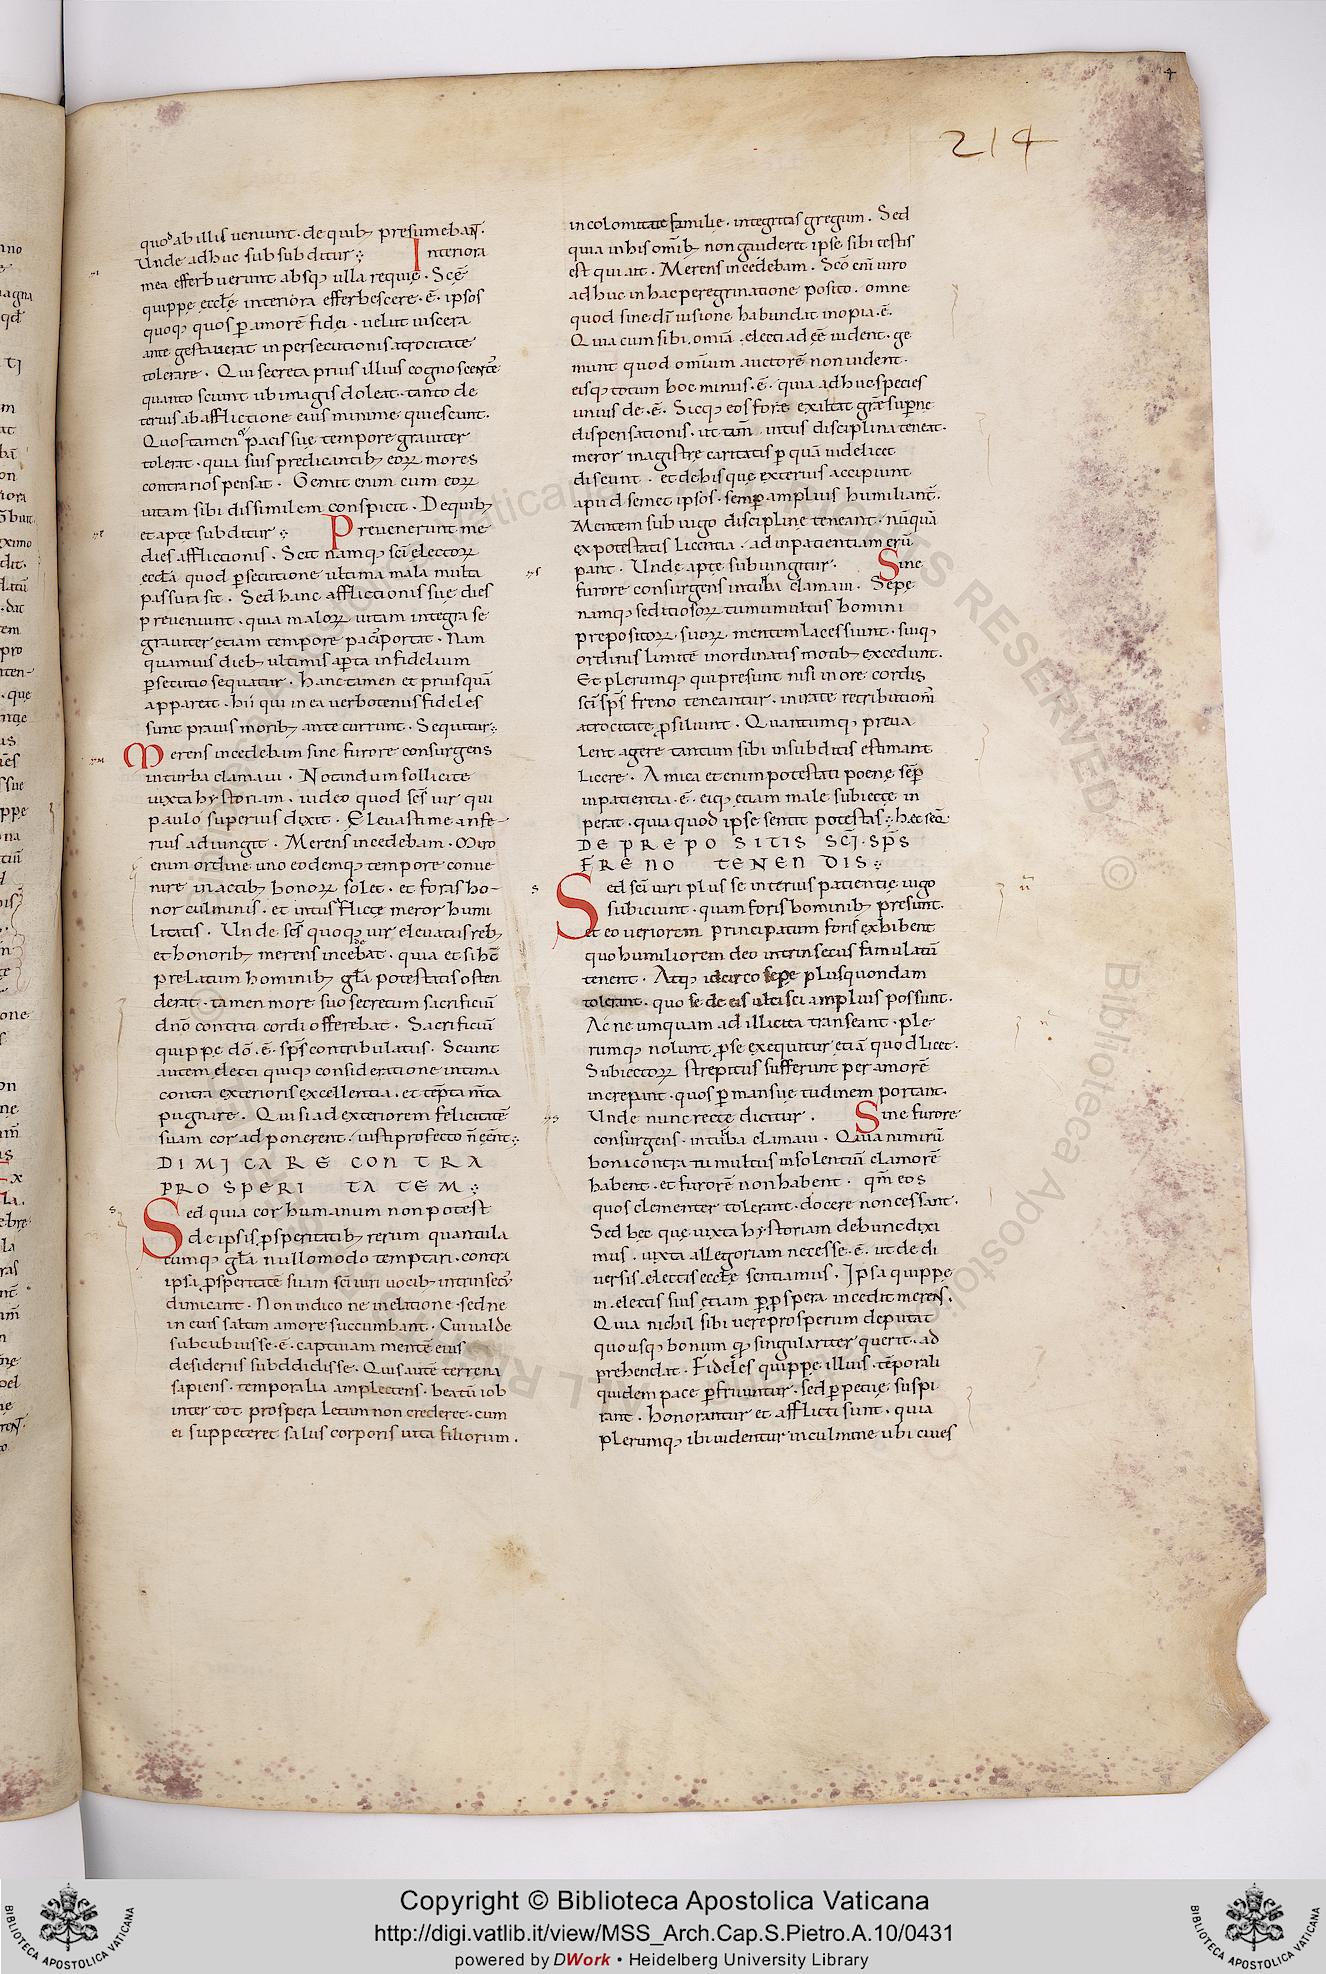 214
quos ab illis ueniunt · de quib; presumebant̄.
Unde adhuc sub subditur ⁘ Interiora
mea efferbuerunt absq; ulla requie · Scē
quippe ecclę interiora efferbescere · ē · ipsos
quoq; quos p̄ amorē fidei · uelut uiscera
ante gestauerat in persecutionis atrocitate
tolerare · Qui secreta prius illius cognoscentes
quanto sciunt ubi magis doleat · tanto de
terius ab afflictione eius minime quiescunt.
Quos tamen pacis sue tempore grauiter
tolerat · quia suis predicantib; eoꝝ mores
contrarios pensat · Gemit enim cum eoꝝ
uitam sibi dissimilem conspicit · De quib;
et apte subditur ⁘ Preuenerunt me
dies afflictionis · Scit namq; scī electoꝝ
eccła quod p̄secutione ultima mala multa
passura sit · Sed hanc afflictionis suę dies
preueniunt · quia maloꝝ uitam integra se
grauiter etiam tempore pacis portat · Nam
quamuis dieb; ultimis ap̄ta infidelium
p̄secutio sequatur · hanc tamen et priusquā
appareat · hii qui in ea uerbotenus fideles
sunt prauis morib; antecurrunt · Sequitur ⁘
Merens incedebam sine furore consurgens
in turba clamaui · Notandum sollicite
iuxta hystoriam · uideo quod scs̄ uir qui
paulo superius dixit · Eleuasti me · infe-
rius adiungit · Merens incedebam · Miro
enim ordine uno eodemq; tempore conue
nire in actib; bonoꝝ solet · et foras ho-
nor culminis · et intus afflictę meror humi
litatis · Unde scs̄ quoq; uir eleuatus reb;
et honorib; merens incedebat · quia et si hc̄
prelatum hominib; gła potestatis osten
derat · tamen more suo secretum sacrificiū
dn̄o contriti cordis offerebat · Sacrificiū
quippe dō · ē · sp̄s contribulatus · Sciunt
autem electi quiq; consideratione intima
contra exterioris excellentia · et tēpta mīta
pugnare · Qui si ad exteriorem felicitatē
suam cor adponerent · iusti profecto n̄ eēnt ⁘
DIMICARE CONTRA
PROSPERITATEM ⁘
Sed quia cor humanum non potest
de ipsis p̄speritatib; rerum quantula
cumq; gła nullomodo temptari · contra
ipsā p̄speritatē suam scī uiri uocib; intrinsecus
dimicant · Non indico ne in elatione · sed ne
in eius saltim amore succumbant · Cui ualde
subcubuisse · ē · captiuam mentē eius
desideriis subddidisse · Quis autē terrena
sapiens · temporalia amplectens · beatū iob
inter tot prospera letum non crederet · cum
ei suppeteret salus corporis uita filiorum ·
incolomitate familie · integritas gregum · Sed
quia in his om̄ib; non gauderet ipse sibi testis
est qui ait · Merens incedebam · Scō eni uiro
adhuc in hac peregrinatione posito · omne
quod sine dī uisione habundat inopia · ē ·
Quia cum sibi · omiā · electi adeē uident · ge
munt quod om̄ium auctorē non uident ·
eisq; totum hoc minus · ē · quia adhuc species
unius de · ē · Sicq; eos foræ exiltat grę sup̄ne
dispensationis · ut tam̄ intus disciplina teneat ·
meror magistre caritatis p̄ quā uidelicet
discunt · et de his que exterius accipiunt
apud semet ipsos · semp̄ amplius humiliant̄.
Mentem sub iugo discipline teneant · nūquā
ex potestatis licentia · ad inpatientiam erū
pant · Unde apte subiungitur · Sine
furore consurgens in turba clamaui · Sepe
namq; seditiosoꝝ tumumultus homini
prepositoꝝ suoꝝ mentem lacessiunt · suiq;
ordinis limitē inordinatis motib; excedunt.
Et plerumq; qui presunt nisi in ore cordis
scī sp̄s freno teneantur · in iratę retributionis
atrocitate p̄siliunt · Quantumq; preua
lent agere tantum sibi in subditis estimant
licere · Amica et enim potestati poene sep̄
inpatientia · ē · eiq; etiam male subiectę in
perat · quia quod ipse sentit potestas ⁘ hec seq̄
DE PREPOSITIS SCĪ · SP̄S
FRENO TENENDIS ⁘
Sed scī uiri plus se interius patientię iugo
subiciunt · quam foris hominib; presunt.
et eo ueriorem principatum foris exhibent
quo humiliorem deo intrinsecus famulatū
tenent · Atq; idcirco sepe plus quondam
tolerant · quo se de eis ulcisci amplius possunt.
Ac ne umquam ad illicita transeant · ple-
rumq; nolunt p̄ se exequitur etiā quod licet ·
Subiectoꝝ strepitus sufferunt per amorē
increpant · quos p̄ mansuetudinem portant.
Unde nunc recte dicitur · Sine furore
consurgens · in turba clamaui · Quia nimirū
boni contra tumultus insolentiū clamorē
habent · et furorē non habent · qm̄ eos
quos clementer tolerant · docere non cessant ·
Sed hęc que iuxta hystoriam de hunc dixi
mus · iuxta allegoriam necesse · ē · ut de di
uersis electis ecclę sentiamus · Ipsa quippe
in electis suis etiam p̄ p̄spera incedit merens.
Quia nichil sibi uere prosperum deputat
quousq; bonum q̄ singulariter querit · ad
prehendat · Fideles quippe illius · tēporali
quidem pace p̄fruuntur · sed p̄petuę suspi
rant · honorantur et afflicti sunt · quia
plerumq; ibi uidentur in culmine ubi ciues
Copyright © Biblioteca Apostolica Vaticana
http://digi.vatlib.it/view/MSS_Arch.Cap.S.Pietro.A.10/0431
powered by DWork • Heidelberg University Library